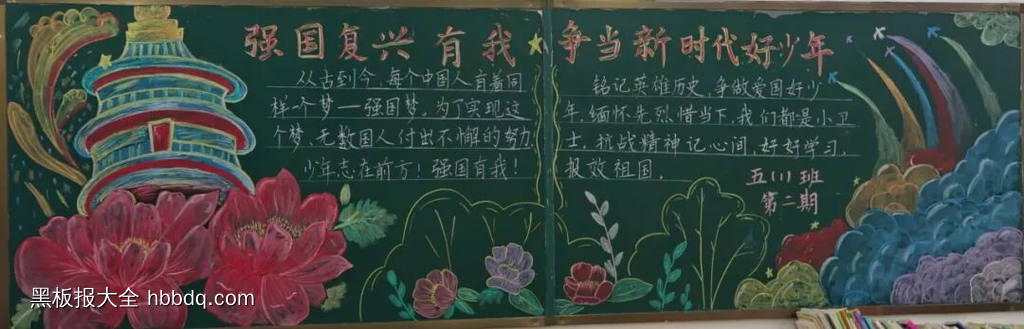 强国复兴有我 争当新时代好少年
从古到今,每个中国人有着同
样一个梦—强国梦。为了实现这
个梦、无数国人付出不懈的努力
少年志在前方!强国有我!
铭记英雄历史,争做爱国好少
年,缅怀先烈惜当下,我们都是小卫
士,抗战精神记心间,好好学习,
报效祖国。
五(1)班
第二期
黑板报大全 hbbdq.com